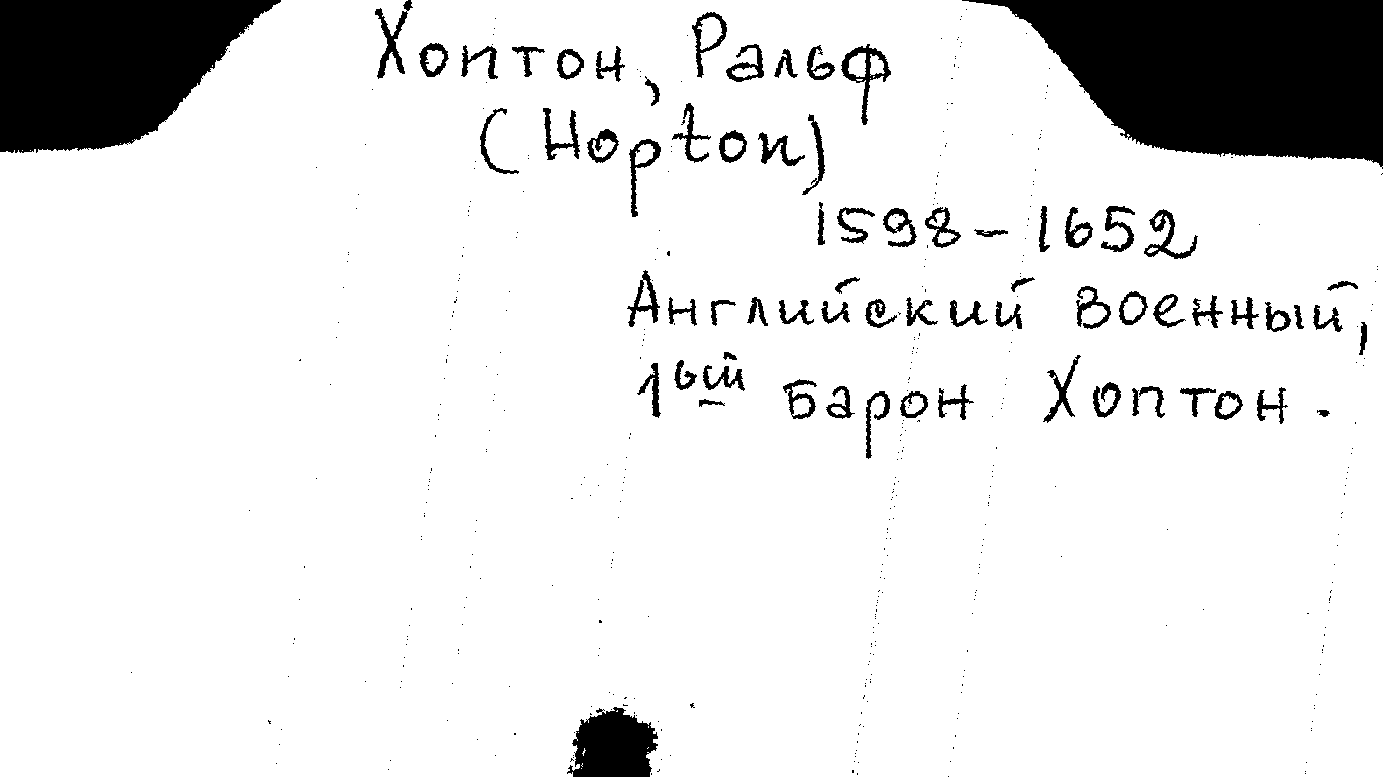 Хоптон, Ральф
(Hopton)
1598-1652
Английский военный,
1ый барон Хоптон.